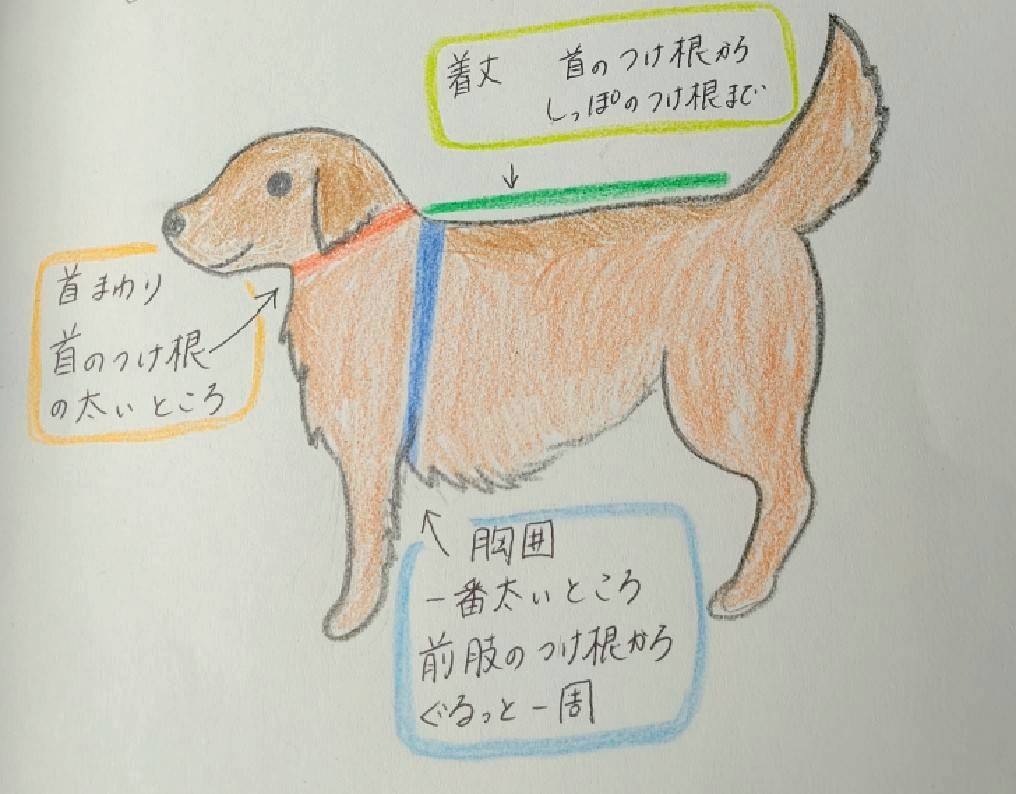 着丈 首のつけ根から
しっぽのつけ根まで
首まわり
首のつけ根
の太いところ
胸囲
一番太いところ
前肢のつけ根から
ぐるっと一周